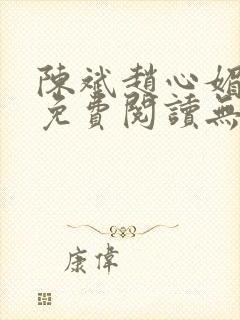 陳斌趙心媚
免費閱讀無
康偉